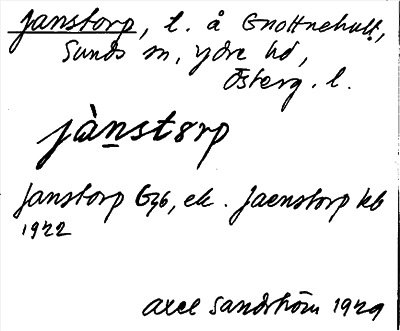 Janstorp, t. å Gnottnehult,
Sunds sn, Ydre hd,
Österg. l.
jàn̲stɔrp
Janstorp Gyb, ek. Jaenstorp kb
1722
Axel Sandström 1929